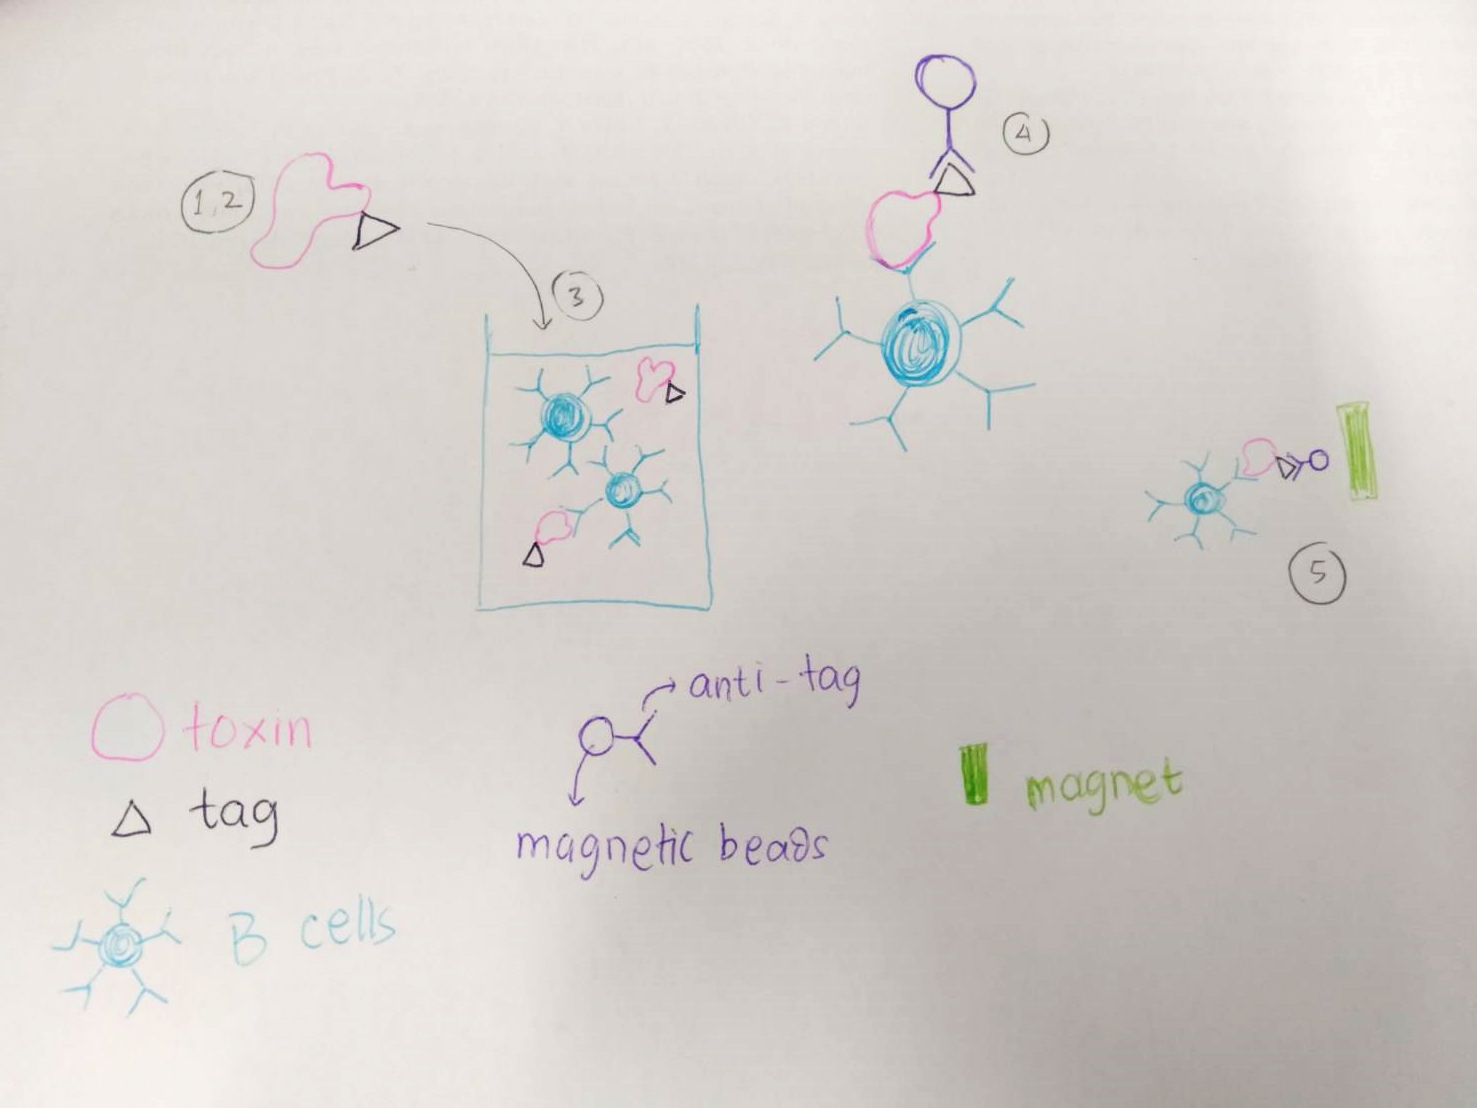 1,2
3
4
5
toxin
tag
B cells
anti-tag
magnetic beads
magnet